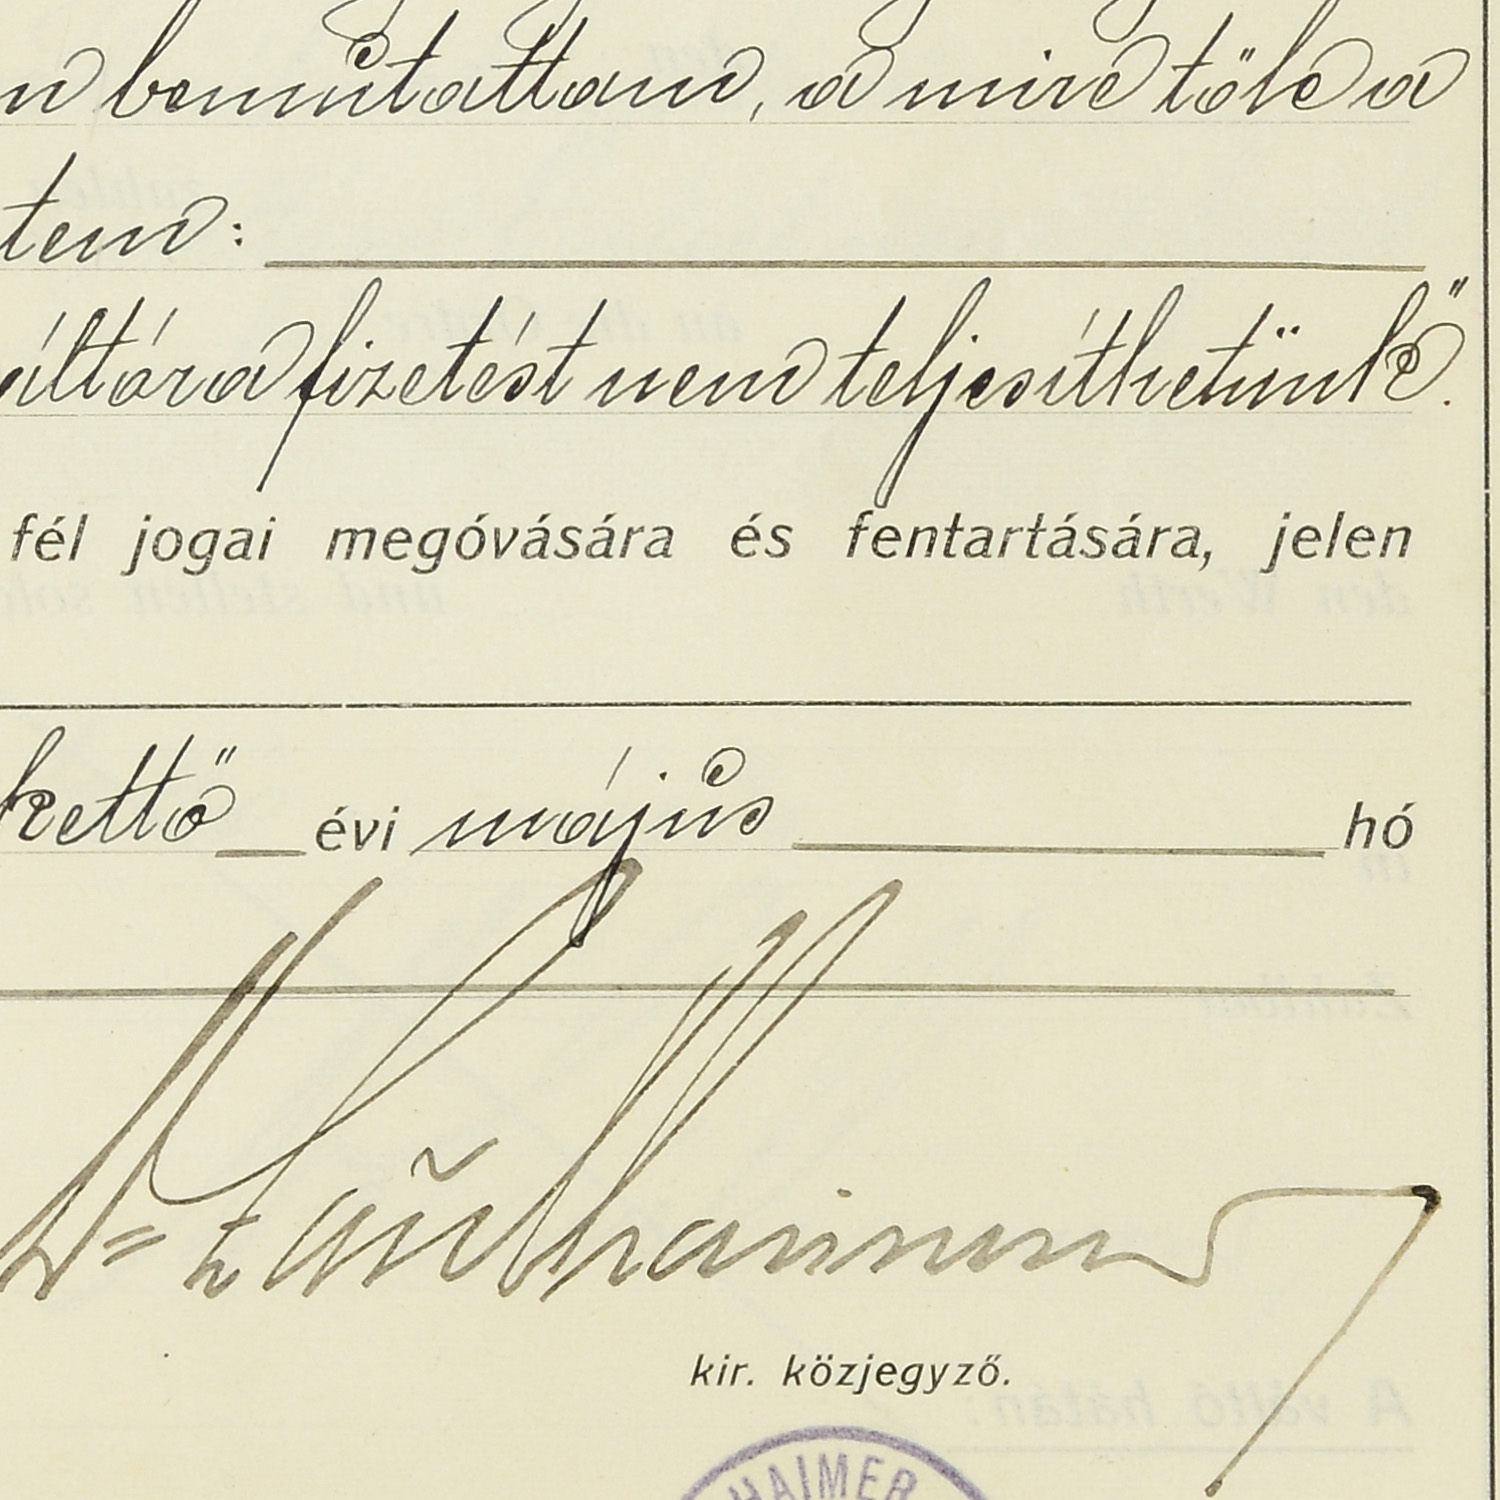 bemutattam, a mire tőle a
tem:
áltóra fizetést nem teljesíthetünk".
fél jogai megóvására és fentartására, jelen
kettő évi május hó
kir. közjegyző.
HAIMER